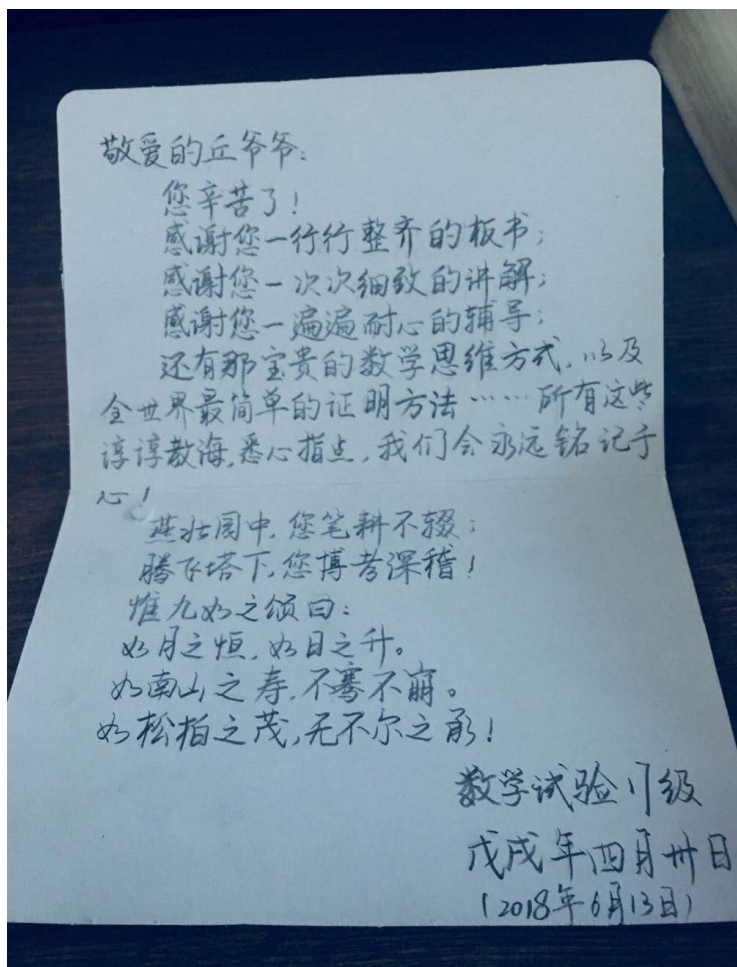 敬爱的丘爷爷:
您辛苦了!
感谢您一行行整齐的板书;
感谢您一次次细致的讲解;
感谢您一遍遍耐心的辅导;
还有那宝贵的数学思维方式,以及
全世界最简单的证明方法……所有这些
谆谆教海,悉心指点,我们会永远铭记于
心!
燕壮园中,您笔耕不辍;
腾飞塔下,您博考深稽!
惟九如之颂曰:
如月之恒,如日之升。
如南山之寿,不骞不崩。
如松柏之茂,无不尔之承!
数学试验17级
戊戌年四月卅日
(2018年6月13日)